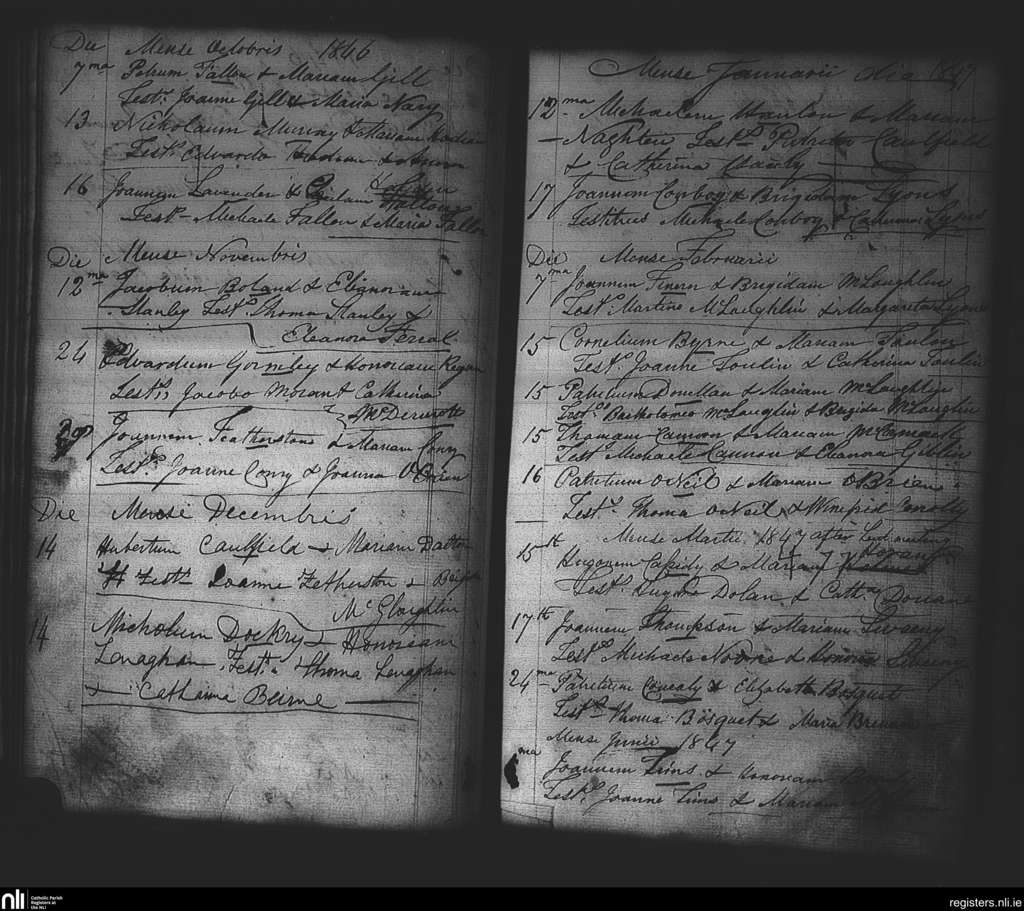 Die Mense Octobris 1846
7ma Petrum Fallon & Mariam Gill
Tests. Joanne Gill & Maria Nary
13 Nicholaum Murray & Mariam
Tests. Edvardo &
16 Joannem Lavender & Fallon
Tests Michaele Fallon & Maria Fallon
Die Mense Novembris
12ma Jacobum Boland & Elianoram
Stanley Tests. Thoma Stanley &
Eleanora Fereal
24 Edvardum Gormley & Honoriam Regan
Tests Jacobo Morant Catherina
McDermott
Joannem Featherstone & Mariam Conry
Tests. Joanne Conry & Joanna O'Brien
Die Mense Decembris
14 Hubertum Caulfield & Mariam Dalton
Tests Joanne Fetherston &
McGloughlin
14 Nicholum Dockry & Honoriam
Lenaghan Tests. Thoma Lenaghan
& Catharina Beirne
Mense Januarii die 1847
12ma Michaelem Hanlon & Mariam
Naghten Tests Patritio Caulfield
& Catherina
17 Joannem Conboy & Brigidam Lyons
Testibus Michaele Conboy & Lyons
Die Mense Februarii
7ma Joannem Finern & Brigidam McLoughlin
Tests. Martino McLoughlin & Margareta Lyons
15 Cornelium Byrne & Mariam Toulon
Tests. Joanne Toulin & Catharina Toulin
15 Patritium Donellan & Mariam McLaughlin
Tests. Bartholomeo McLaughlin & Brigida McLaughlin
15 Thomam Cannon & Mariam McCormack
Tests Michaele Cannon & Eleanora Giblin
16 Patritium O'Neil & Mariam O'Brien
Tests. Thoma O'Neil & Winefrid Conolly
Mense Martii 1847 after Lent
15th Hugonem Cassidy & Mariam
Tests. Hugone Dolan & Cath.
17th Joannem Thompson & Mariam Sweeny
Tests Michaele & Honoria
24ma Patritium Conealy & Elizabeth Bosquet
Tests Thoma Bosquet & Maria Brennan
Mense Junii 1847
ma Joannem Tims & Honoriam
Tests. Joanne Tims & Mariam
nli Catholic Parish
Registers at
the NLI
registers.nli.ie